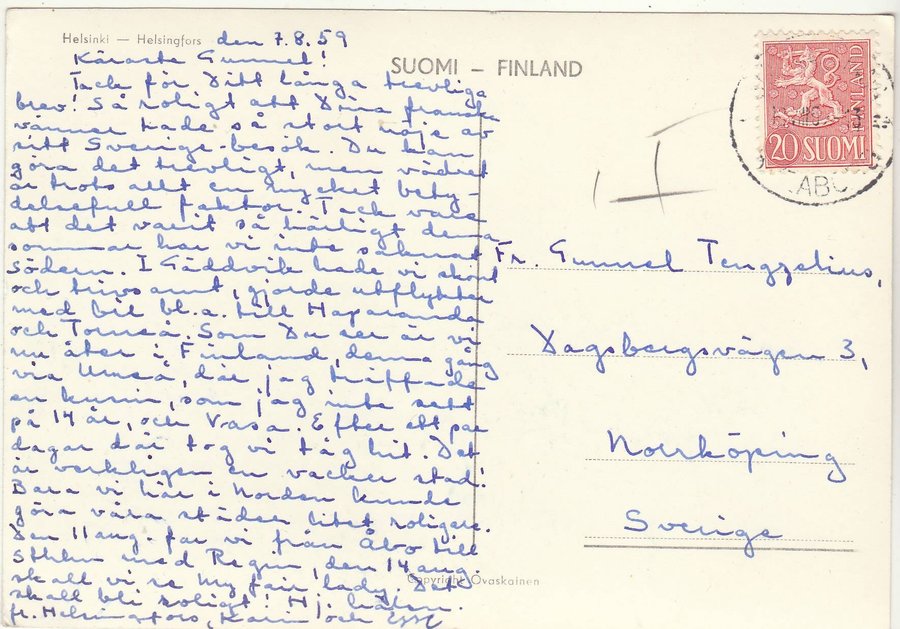 Helsinki — Helsingfors den 7.8.59
Käraste Gunnel!
Tack för Ditt långa trevliga
brev! Så roligt att Dina franska
vänner hade så stort nöje av
sitt Sverige-besök. Du kan
göra det trevligt, men vädret
är trots allt en mycket bety-
delsefull faktor. Tack vare
att det varit så härligt denna
sommar har vi inte saknat
södern. I Gäddvik hade vi skönt
och trivsamt, gjorde utflykter
med bil bl.a. till Haparanda
och Torneå. Som Du ser är vi
nu åter i Finland, denna gång
via Umeå, där jag träffade
en kusin, som jag inte sett
på 14 år, och Vasa. Efter ett par
dagar där tog vi tåg hit. Det
är verkligen en vacker stad!
Bara vi här i Norden kunde
göra våra städer litet roligare.
Den 11 aug. far vi från Åbo till
Sthlm med Regin, den 14 aug.
skall vi se My fair lady. Det
skall bli roligt! Hj. hälsn.
fr. Helsingfors, Karin och
SUOMI – FINLAND
FINLAND
20 SUOMI
ÅBO
Fr. Gunnel Tengzelius,
Dagsbergsvägen 3,
Norrköping
Sverige
Copyright Ovaskainen